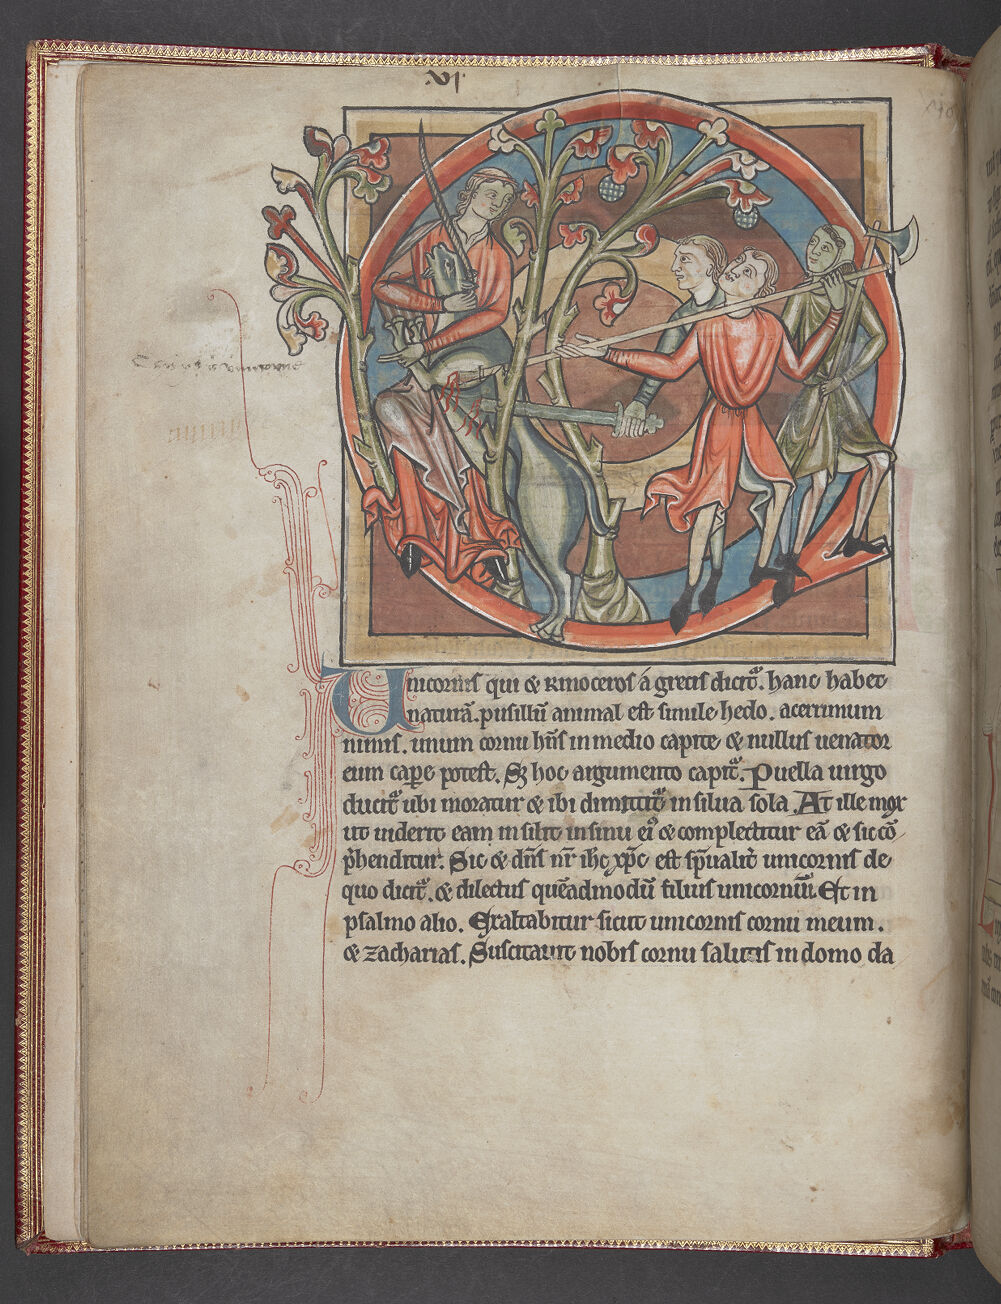 .vi.
Unicornis qui & Rinoceros a grecis dicit᷑. hanc habet
naturā. pusillū animal est simile hedo. acerrimum
nimis. unum cornu hn̄s in medio capite & nullus uenator
eum cape potest. Sꝫ hoc argumento capit᷑. Puella uirgo
ducit᷑ ubi moratur & ibi dimittit᷑ in silua sola. At ille mox
ut uiderit eam insilit in sinu ei᷒ & complectitur eā & sic cō
p̄henditur. Sic & dn̄s nr̄ ihc xp̄c est sp̄ualit̄ unicornis de
quo dicit᷑. & dilectus quēadmodū filius unicorniū. Et in
psalmo alio. Exaltabitur sicut unicornis cornu meum.
& zacharias. Suscitauit nobis cornu salutis in domo da